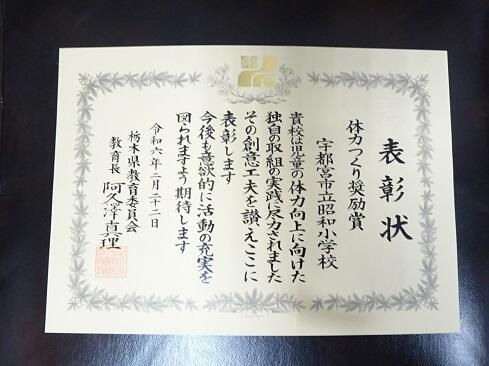 表彰状
体力つくり奨励賞
宇都宮市立昭和小学校
貴校は児童の体力向上に向けた
独自の取組の実践に尽力されました
その創意工夫を讃えここに
表彰します
今後も意欲的に活動の充実を
図られますよう期待します
令和六年二月二十二日
栃木県教育委員会
教育長 阿久澤真理